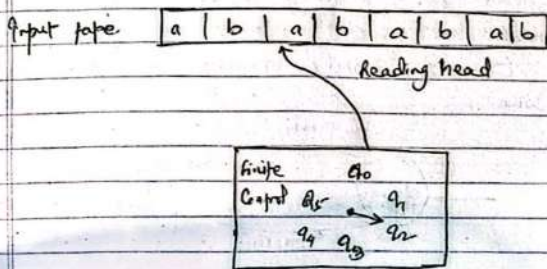 Input tape a b a b a b a b
Reading head
Finite q0
Control q5 q1
q4 q3 q2